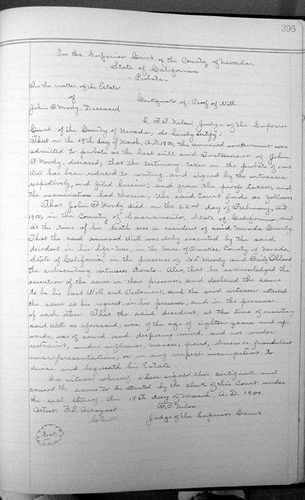 395
In the Superior Court of the County of Nevada,
State of California
Probate
In the matter of the Estate
of
John P. Moody, Deceased. Certificate of Proof of Will
I, F. T. Nilon, Judge of the Superior
Court of the County of Nevada, do hereby certify:
That on the 19th day of March, A.D. 1900, the annexed instrument was
admitted to probate, as the last will and testament of John
P. Moody, deceased; that the testimony taken on the probate of said
Will has been reduced to writing and signed by the witnesses
respectively, and filed herein; and from the proofs taken and
the examination had therein, the said Court finds as follows:
That John P. Moody died on the day of February, A.D.
1900, in the County of Sacramento, State of California, and
at the time of his death was a resident of said Nevada County.
That the said annexed Will was duly executed by the said
decedent in his life time, in the town of Truckee County of Nevada,
State of California, in the presence of Moody and
the subscribing witness thereto: Also, that he acknowledged the
execution of the same in their presence, and declared the same
to be his last Will and Testament; and the said witnesses attested
the same at his request, in his presence, and in the presence
of each other. That the said decedent, at the time of executing
said Will as aforesaid, was of the age of eighteen years and up-
wards, was of sound and disposing mind, and not under
restraint, undue influence, menace, fraud, duress or fraudulent
misrepresentation, or in any respect incompetent to
devise and bequeath his Estate.
In witness whereof, I have signed this Certificate and
caused the same to be attested by the Clerk of this Court under
the seal thereof, this 19th day of March, A.D. 1900.
Attest: F. T. Nilon
Clerk Judge of the Superior Court
Seal